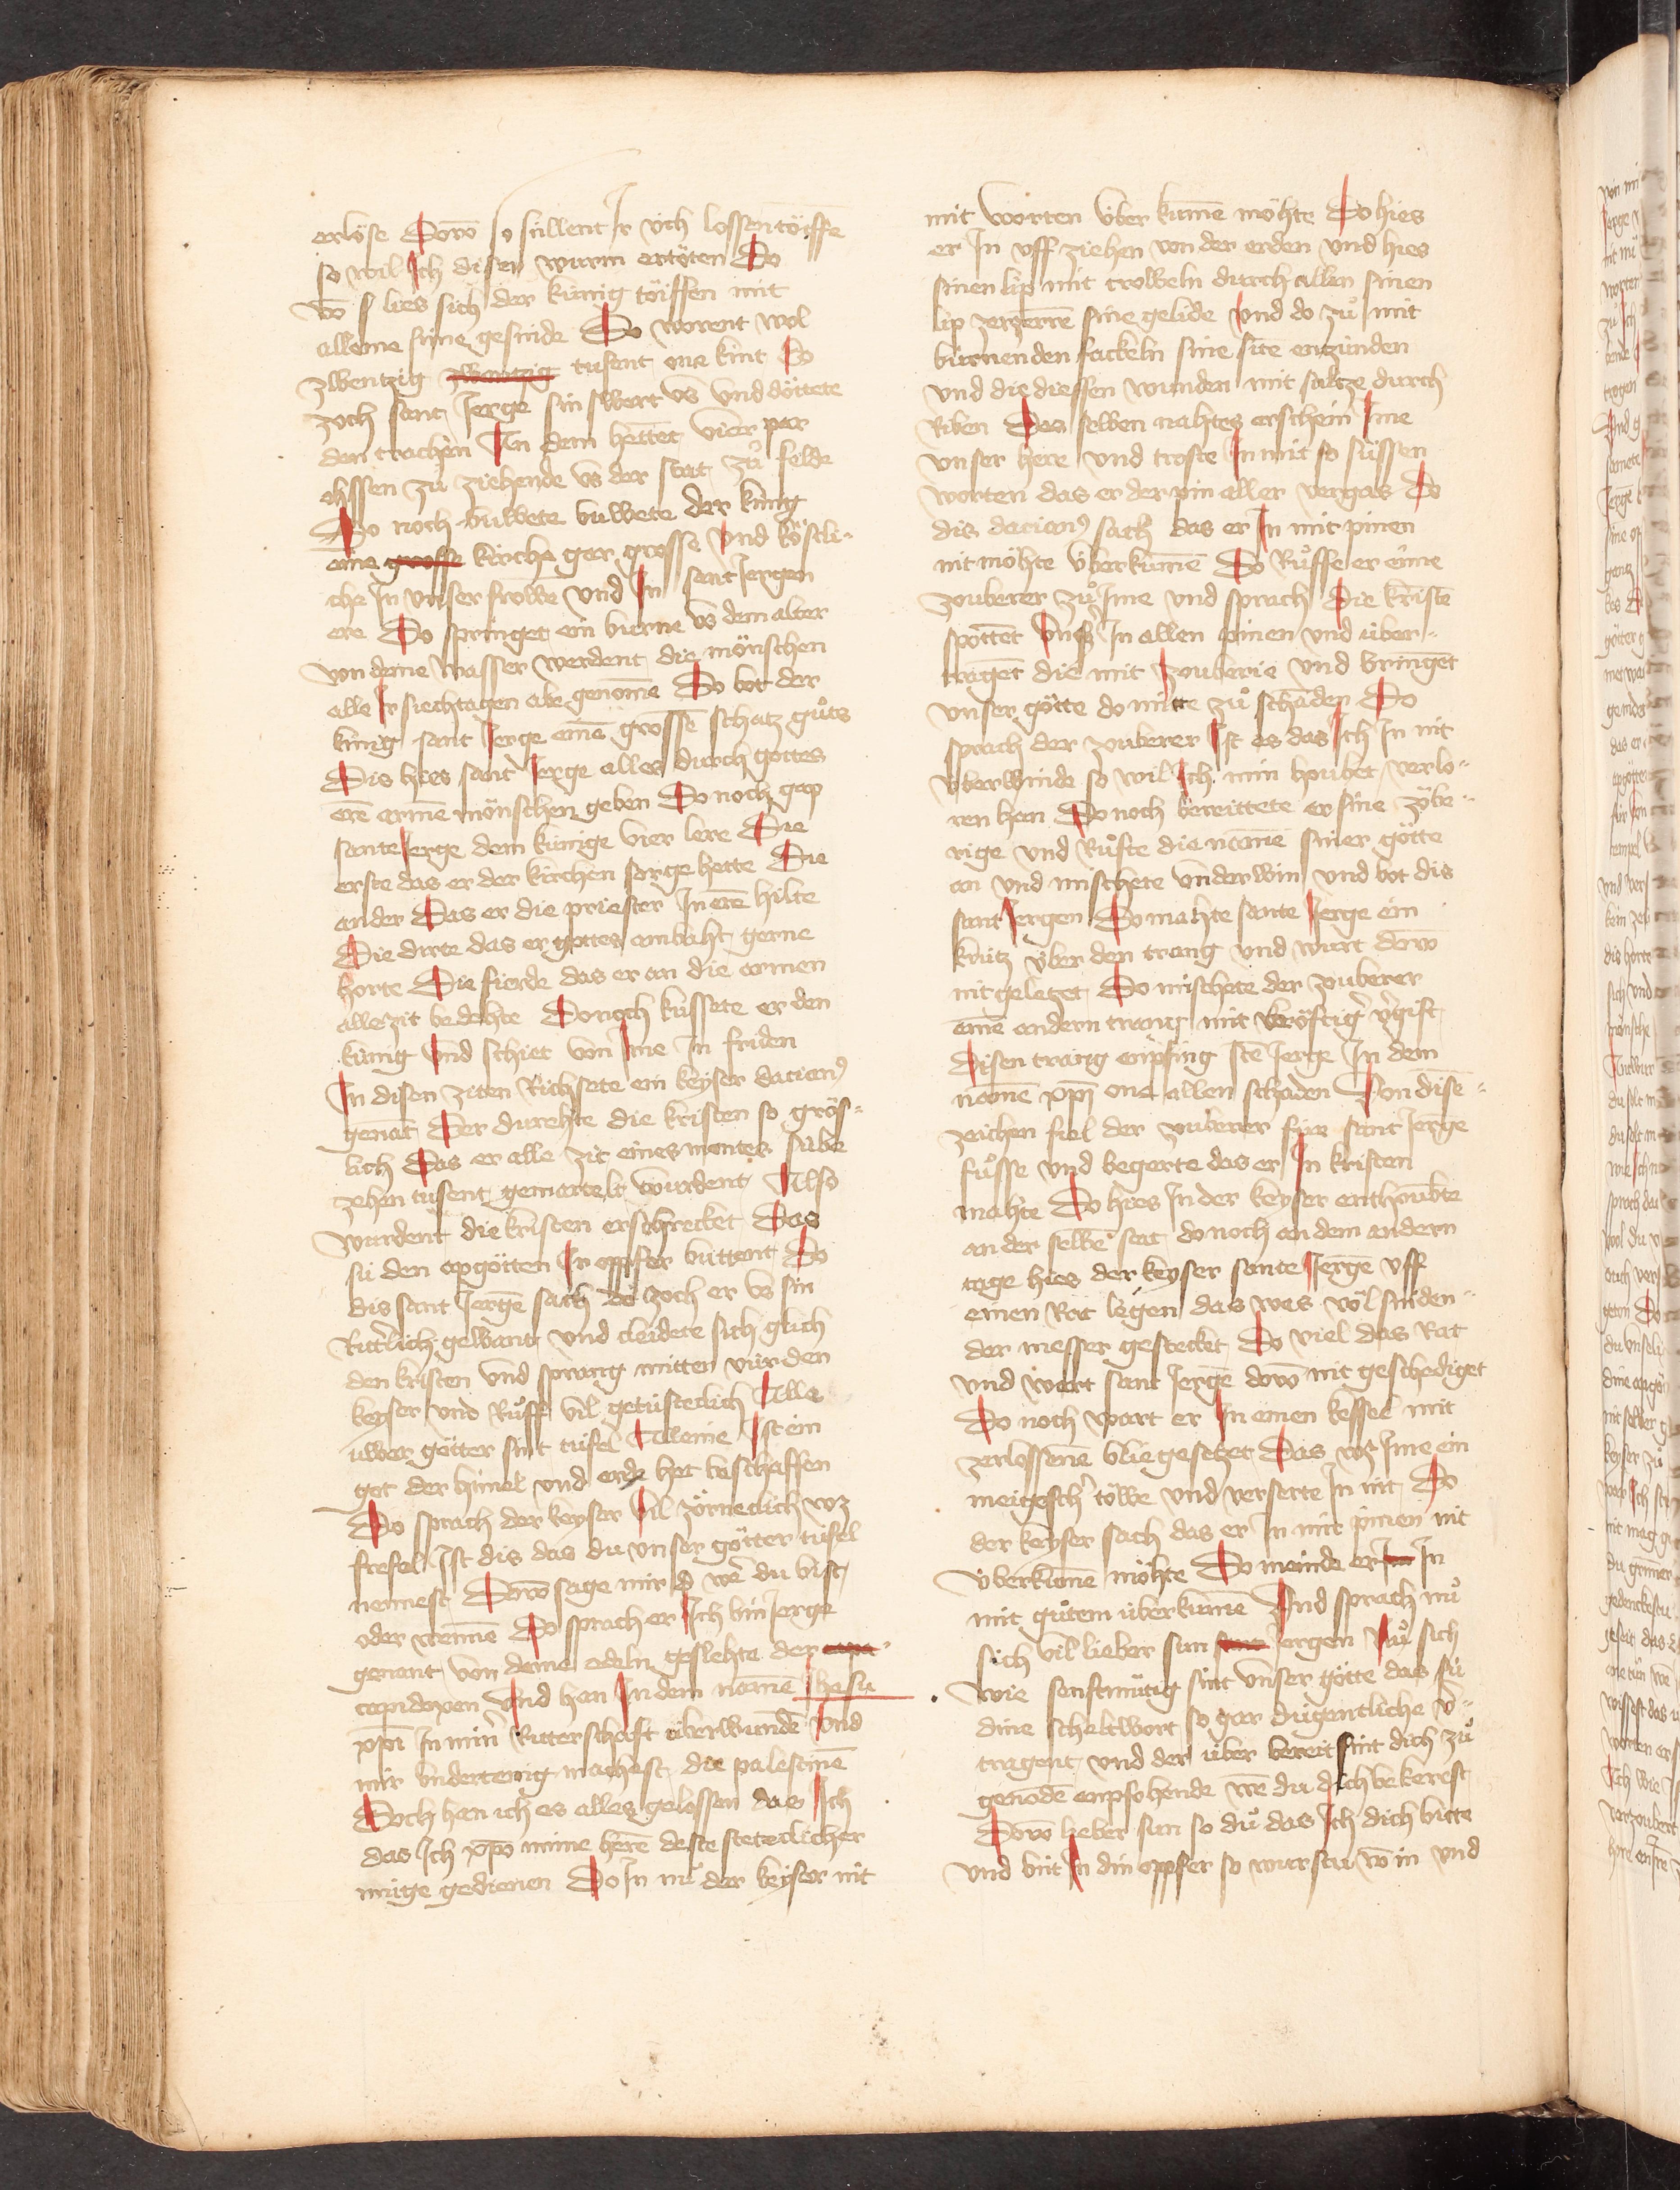 erlöse Dorō so süllent Ir üch lossen töiffe
so wil Ich disen wurm ertöten Do
vō s lies sich der künig töiffen mit
alleme sime gesinde Do worent wol
zwentzig zwentzig tusent one kint Do
zoch sant Jerge sin swert vs und döttete
den trachen An dem hettēt vier par
ohssen zů ziehende vs der stat zů felde
Do noch buwete buwete der künig
eine grosse kirche gar grosse Und köstli-
che In vnser frowē und In sant Jergen
ere Do springet ein burne vs dem alter
von deme wasser werdent die mönschen
alle Ir siechtagen abe genomē Do bot der
künig sant Jerge einē grossē schatz gůts
Dis hies sant Jerge alles durch gottes
erē armē mönschen geben Do noch gap
sante Jerge dem künige vier lere Die
erste das er der kirchen sorge hette Die
ander Das er die priester In erē hilte
Die dirte das er gottes ambaht gerne
horte Die fierde das er an die armen
alle zit bedohte Donoch küssete er den
künig Und schiet von Ime In friden
In disen ziten Richsete ein keyser dacianꝰ
genāt Der durehte die kristen so grös-
lich Das er alle zit eines montes sübe
zehen tusent gemartelt wurdent Also
wurdent die kristen erschrecket Das
sü den apgötten Ir oppfer buttent Do
dis sant Jergē sach do zoch er vs sin
Ritt'lich gewant und cleidete sich glich
den kristen und sprang mitten vür den
keyser vnd Růff vil getürsteclich Alle
üwer götter sint tüfel Alleine Ist ein
got der himel vnd erde het beschaffen
Do sprach der keyser vil zörneclich wz
frefel Ist dis das du vnser götter tüfel
nennest Dorō sage mir d wē du bist
oder vō wennē Do sprach er Ich bin Jerge
genant von deme edeln geslehte der capa-
capidoxen Und han In dem namē Ihesu
xp̄i In min' Ritterschafft überwundē Und
mir vndertenig machest die palestinē
Doch han ich es alles gelossen das Ich
das Ich xp̄o mime herē deste steteclicher
müge gedienen Do In nů der keyser nit
mit worten über kumē möhte Do hies
er In vff ziehen von der erden vnd hies
sinen lip mit croweln durch allen sinen
lip zerzerrē sine gelide Und do zů mit
bürnenden fackeln sine sitē enzünden
vnd die dieffen wunden mit saltze durch
Riben Des selben nahtes erschein Ime
vnser here vnd troste In mit so süssen
worten das er der pin aller vergas Do
dis dacianꝰ sach das er In mit pinen
nit möhte überkumē Do Růffte er eime
zouberer zů Ime vnd sprach Die kristē
spottēt vnser In allen pinen vnd über-
tragēt die mit zouberie vnd bringēt
vnser götte do mitte zů schāden Do
sprach der zouberer Ist es das Ich In nit
überwinde so wil Ich min houbet verlo-
ren han Do noch bereittete er sine zöbe-
rige vnd Růfte die namē siner götte
an vnd mischete vnder win vnd bot dis
sant Jergen Do mahte sante Jerge ein
krütz über den trang vnd wart dorō
nit geletzet Do mischete der zouberer
einē andern trang mit kröftig' v'gift
Disen trang enpfing stē Jerge In dem
namē xp̄i one allen schaden Von disē-
zeichen fiel der zouberer für sant Jerge
fůsse vnd begerte das er In kristen
mahte Do hies In der keyser enthoubte
an der selbē stat do noch an dem andern
tage hies der keyser sante Jergē vff
einen Rat legen das was vol sniden-
der messer gestecket Do viel das Rat
vnd wart sant Jergē dovō nit geschediget
Do noch wart er In einen kessel mit
zerlossenē blie gesetzet Das wz Ime ein
meigesch' töwe vnd verserte In nit Do
der keyser sach das er In mit pinen nit
überkumē möhte Do meinde er Im In
mit gůtem überkumē Und sprach nů
sich vil lieber sun sant Jergen Nů sich
wie senftmütig sint vnser götte das sü
dine scheltwort so gar dügentliche v'-
tragent vnd der über bereit sint dich zů
genodē enpfohende wē du dich bekerest
Dorō lieber sun so dů das Ich dich bitte
vnd büt In din oppfer so wurstu vō in vnd